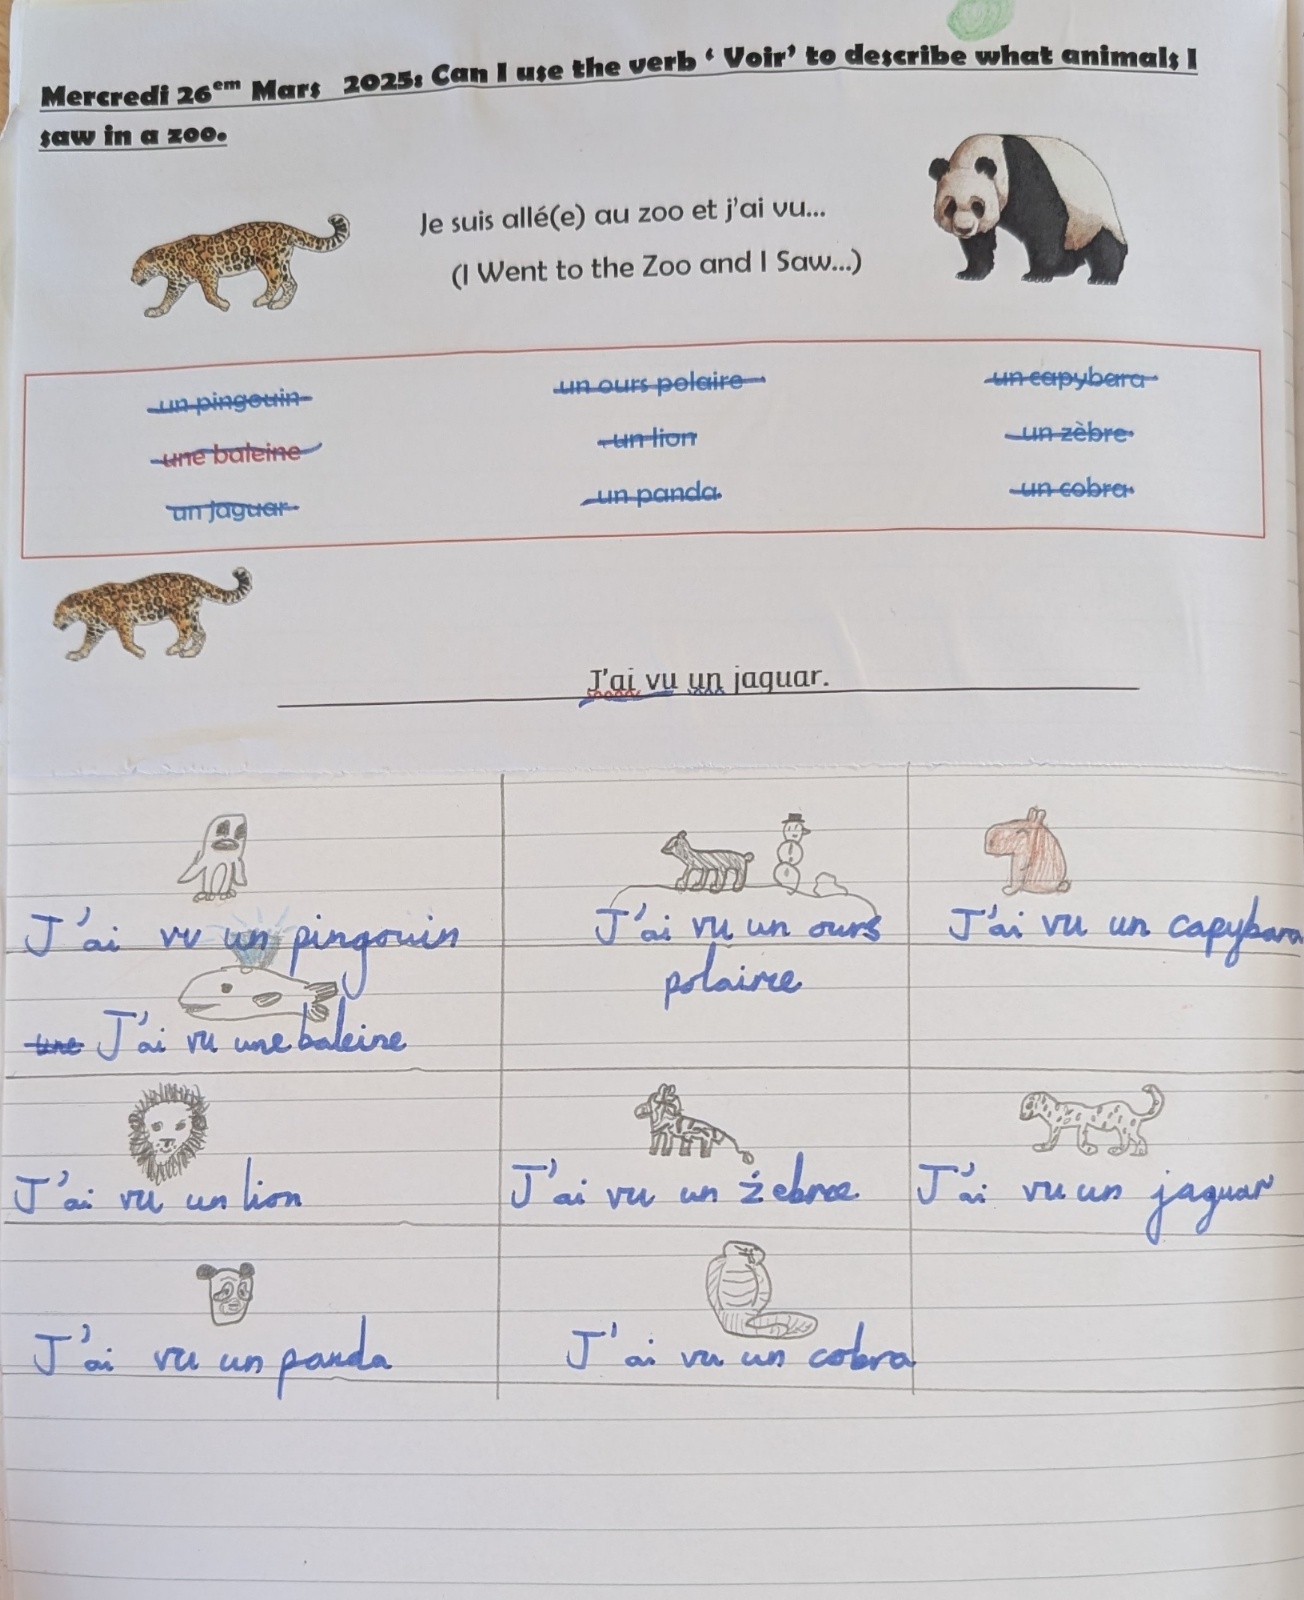 Mercredi 26em Mars 2025: Can I use the verb ‘ Voir’ to describe what animals I
saw in a zoo.
Je suis allé(e) au zoo et j’ai vu...
(I Went to the Zoo and I Saw...)
un pingouin un ours polaire un capybara
une baleine un lion un zèbre
un jaguar un panda un cobra
J’ai vu un jaguar.
J’ai vu un pingouin J’ai vu un ours J’ai vu un capybara
polaire
une J’ai vu une baleine
J’ai vu un lion J’ai vu un żebre J’ai vu un jaguar
J’ai vu un panda J’ai vu un cobra